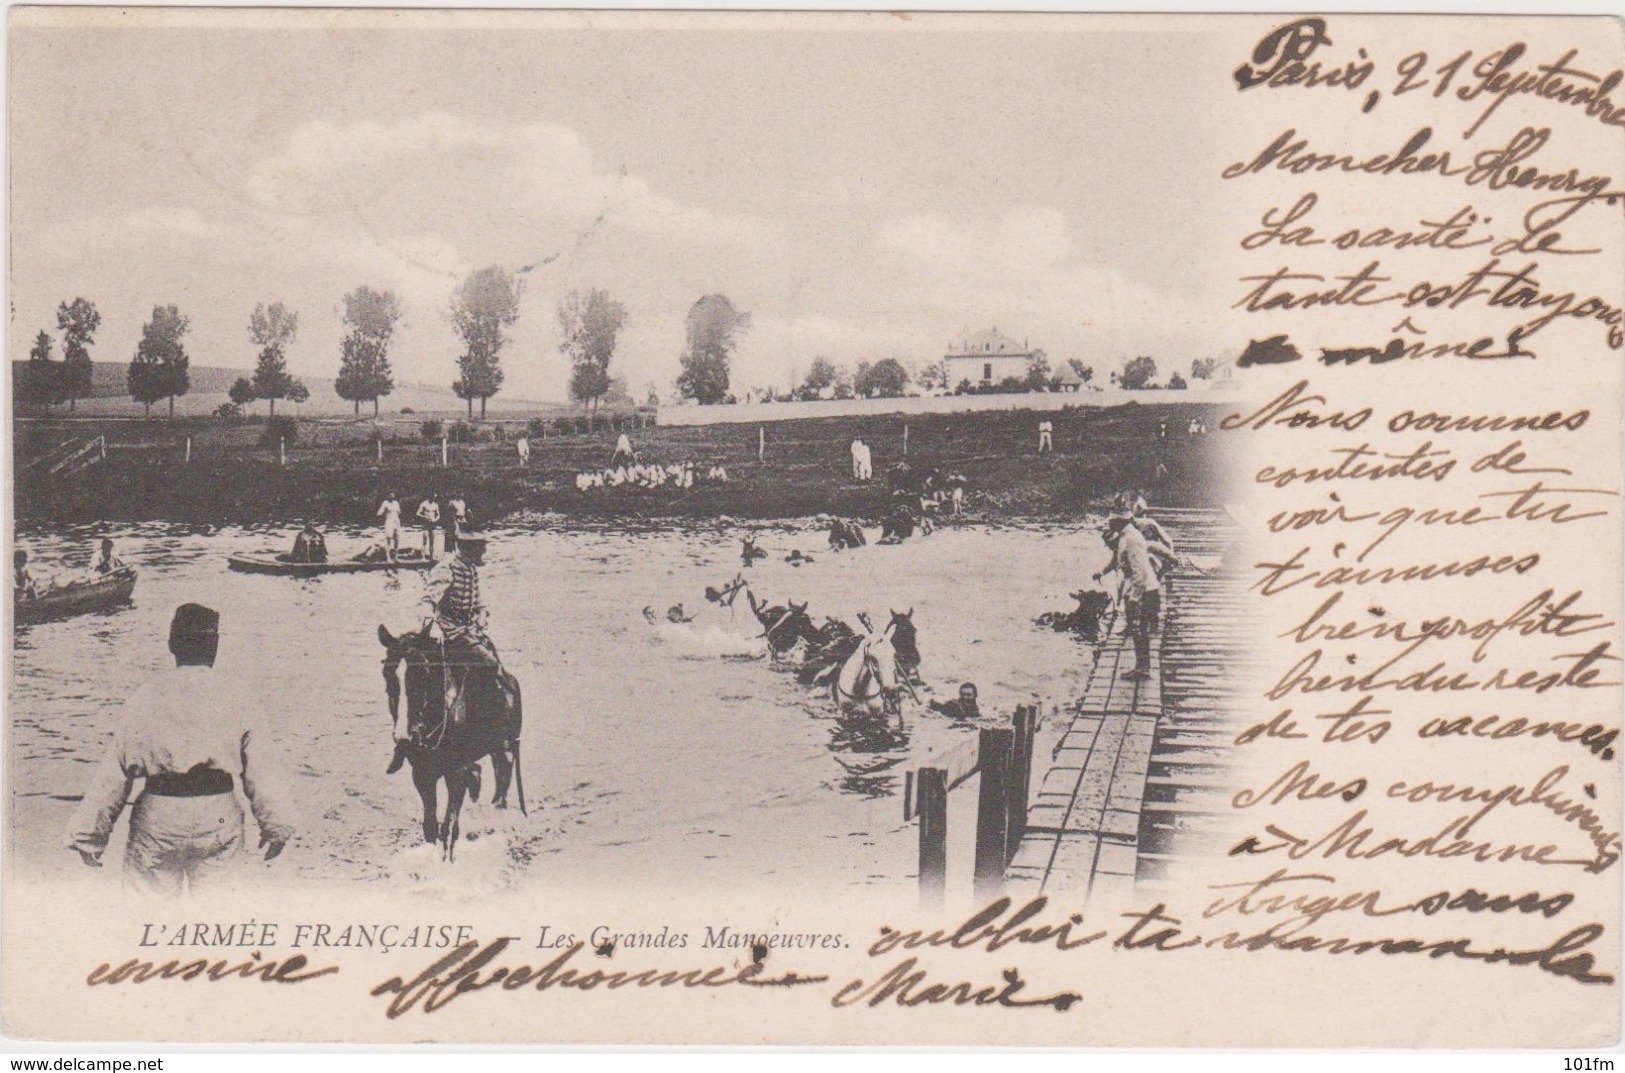 Paris, 21 Septembre
Mon cher Henry.
La santé de
tante est toujours
la même
Nous sommes
contentes de
voir que tu
t'amuses
bien profite
bien du reste
de tes vacances.
Mes compliments
à Madame
Auger sans
oublier ta maman. La
cousine affectionnée. Marie.
L'ARMÉE FRANÇAISE — Les Grandes Manoeuvres.
www.delcampe.net
101fm